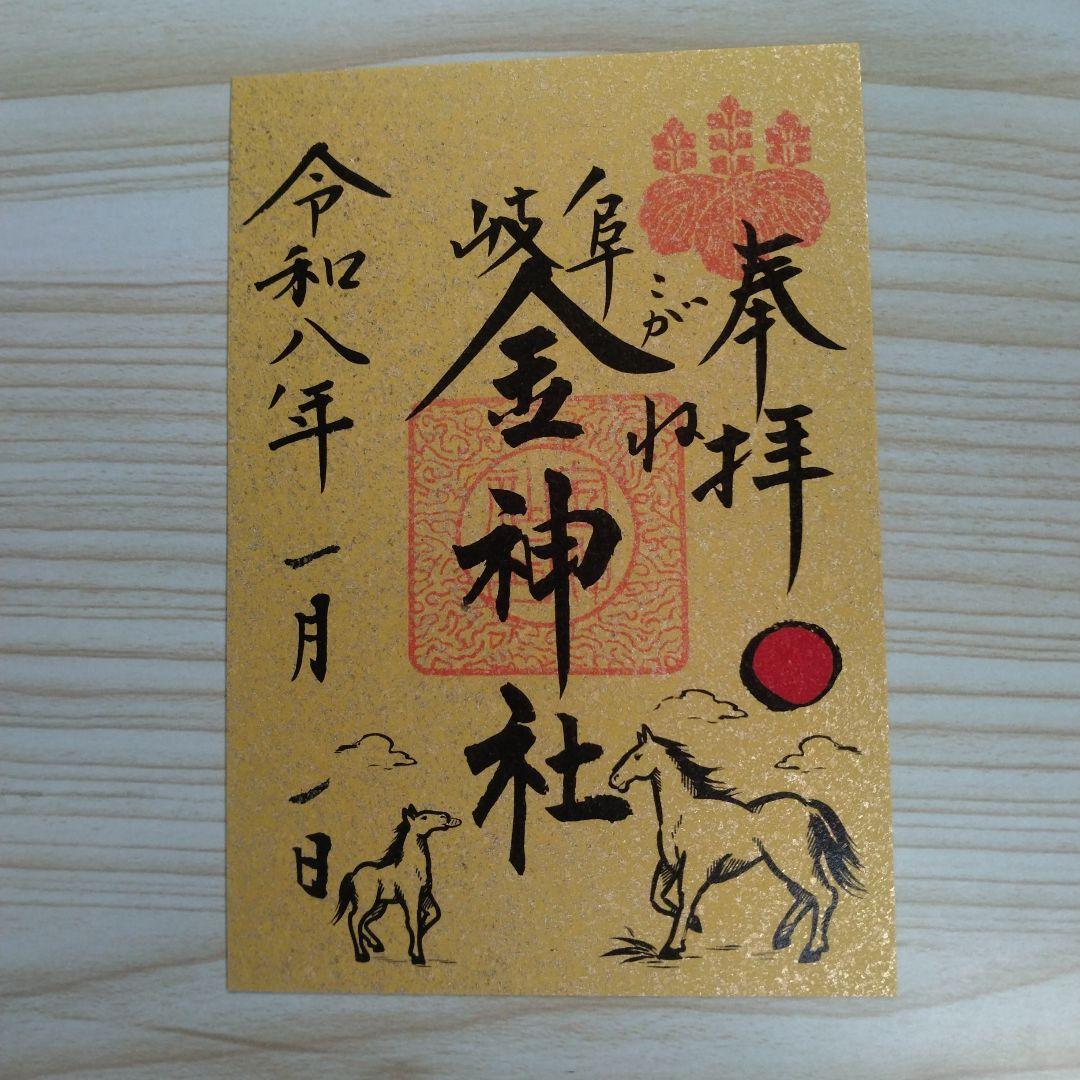 奉拝
こがね
岐阜
金神社
令和八年一月一日